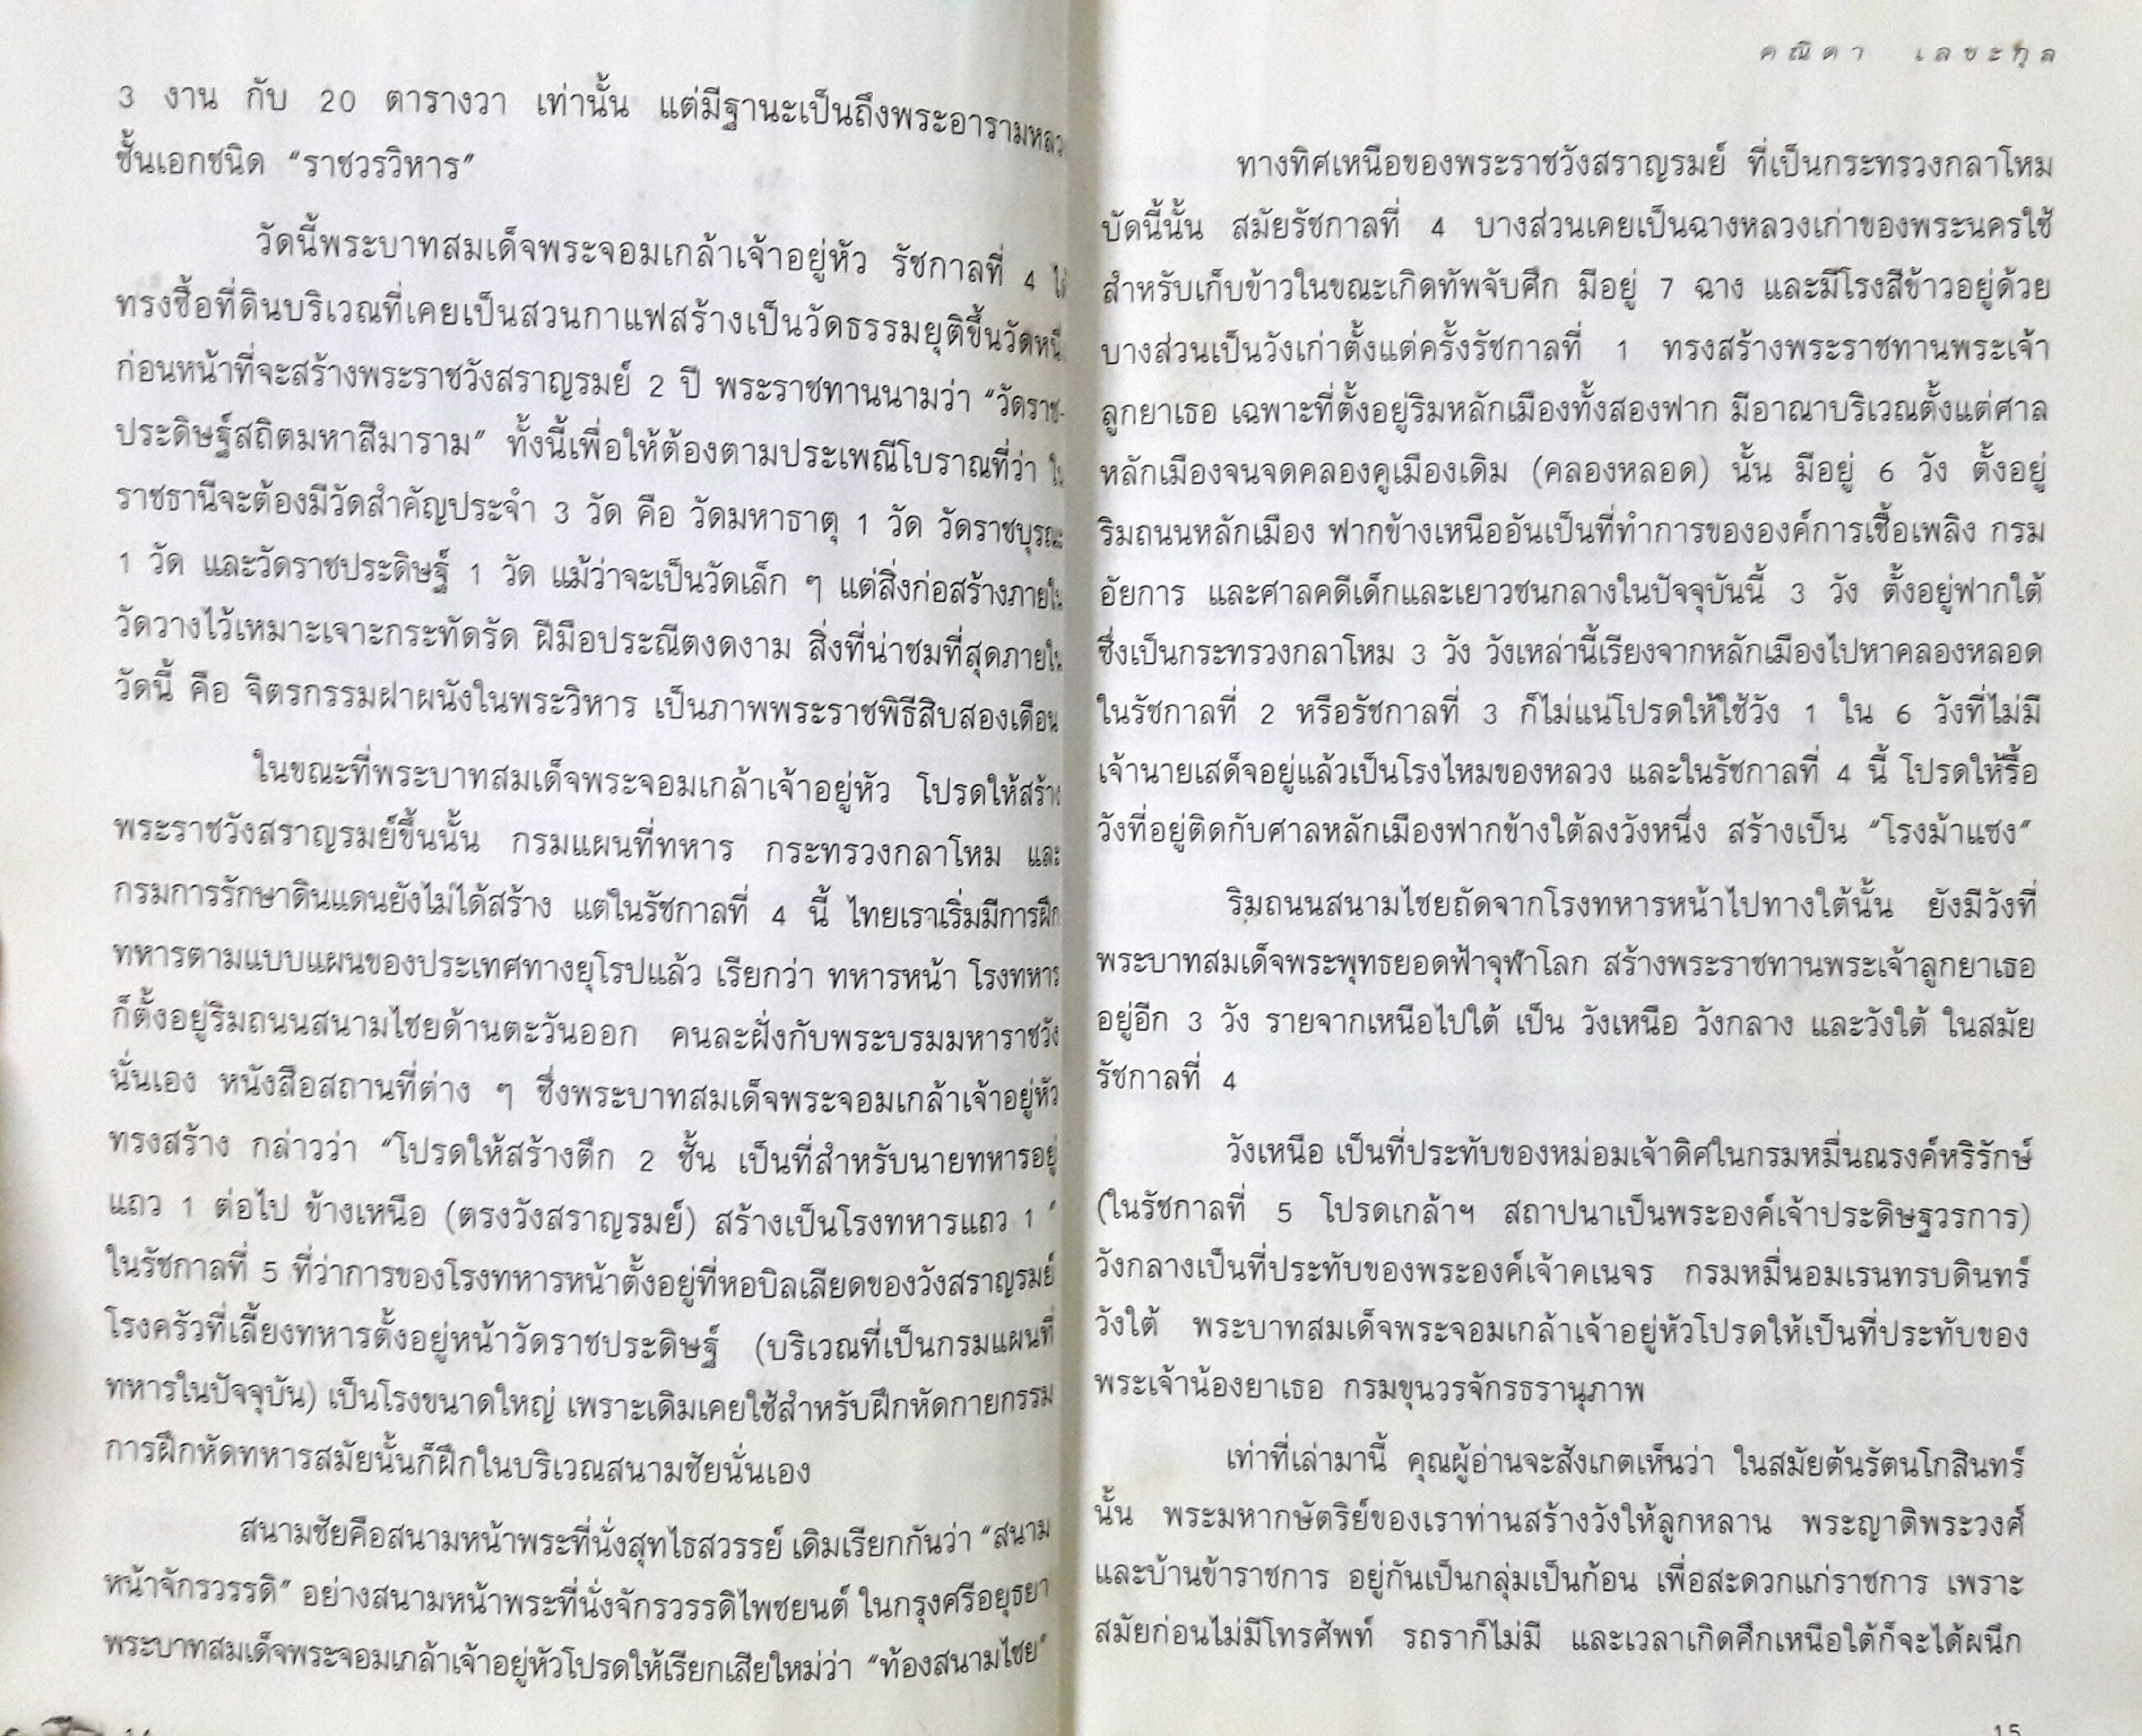 3 งาน กับ 20 ตารางวา เท่านั้น แต่มีฐานะเป็นถึงพระอารามหลวง
ชั้นเอกชนิด “ราชวรวิหาร”
วัดนี้พระบาทสมเด็จพระจอมเกล้าเจ้าอยู่หัว รัชกาลที่ 4 ได้
ทรงซื้อที่ดินบริเวณที่เคยเป็นสวนกาแฟสร้างเป็นวัดธรรมยุติขึ้นวัดหนึ่ง
ก่อนหน้าที่จะสร้างพระราชวังสราญรมย์ 2 ปี พระราชทานนามว่า “วัดราช-
ประดิษฐ์สถิตมหาสีมาราม” ทั้งนี้เพื่อให้ต้องตามประเพณีโบราณที่ว่า ใน
ราชธานีจะต้องมีวัดสำคัญประจำ 3 วัด คือ วัดมหาธาตุ 1 วัด วัดราชบุรณะ
1 วัด และวัดราชประดิษฐ์ 1 วัด แม้ว่าจะเป็นวัดเล็ก ๆ แต่สิ่งก่อสร้างภายใน
วัดวางไว้เหมาะเจาะกระทัดรัด ฝีมือประณีตงดงาม สิ่งที่น่าชมที่สุดภายใน
วัดนี้ คือ จิตรกรรมฝาผนังในพระวิหาร เป็นภาพพระราชพิธีสิบสองเดือน
ในขณะที่พระบาทสมเด็จพระจอมเกล้าเจ้าอยู่หัว โปรดให้สร้าง
พระราชวังสราญรมย์ขึ้นนั้น กรมแผนที่ทหาร กระทรวงกลาโหม และ
กรมการรักษาดินแดนยังไม่ได้สร้าง แต่ในรัชกาลที่ 4 นี้ ไทยเราเริ่มมีการฝึก
ทหารตามแบบแผนของประเทศทางยุโรปแล้ว เรียกว่า ทหารหน้า โรงทหาร
ก็ตั้งอยู่ริมถนนสนามไชยด้านตะวันออก คนละฝั่งกับพระบรมมหาราชวัง
นั่นเอง หนังสือสถานที่ต่าง ๆ ซึ่งพระบาทสมเด็จพระจอมเกล้าเจ้าอยู่หัว
ทรงสร้าง กล่าวว่า “โปรดให้สร้างตึก 2 ชั้น เป็นที่สำหรับนายทหารอยู่
แถว 1 ต่อไป ข้างเหนือ (ตรงวังสราญรมย์) สร้างเป็นโรงทหารแถว 1 ”
ในรัชกาลที่ 5 ที่ว่าการของโรงทหารหน้าตั้งอยู่ที่หอบิลเลียดของวังสราญรมย์
โรงครัวที่เลี้ยงทหารตั้งอยู่หน้าวัดราชประดิษฐ์ (บริเวณที่เป็นกรมแผนที่
ทหารในปัจจุบัน) เป็นโรงขนาดใหญ่ เพราะเดิมเคยใช้สำหรับฝึกหัดกายกรรม
การฝึกหัดทหารสมัยนั้นก็ฝึกในบริเวณสนามชัยนั่นเอง
สนามชัยคือสนามหน้าพระที่นั่งสุทไธสวรรย์ เดิมเรียกกันว่า “สนาม
หน้าจักรวรรดิ” อย่างสนามหน้าพระที่นั่งจักรวรรดิไพชยนต์ ในกรุงศรีอยุธยา
พระบาทสมเด็จพระจอมเกล้าเจ้าอยู่หัวโปรดให้เรียกเสียใหม่ว่า “ท้องสนามไชย”
คณิดา เลขะกุล
ทางทิศเหนือของพระราชวังสราญรมย์ ที่เป็นกระทรวงกลาโหม
บัดนี้นั้น สมัยรัชกาลที่ 4 บางส่วนเคยเป็นฉางหลวงเก่าของพระนครใช้
สำหรับเก็บข้าวในขณะเกิดทัพจับศึก มีอยู่ 7 ฉาง และมีโรงสีข้าวอยู่ด้วย
บางส่วนเป็นวังเก่าตั้งแต่ครั้งรัชกาลที่ 1 ทรงสร้างพระราชทานพระเจ้า
ลูกยาเธอ เฉพาะที่ตั้งอยู่ริมหลักเมืองทั้งสองฟาก มีอาณาบริเวณตั้งแต่ศาล
หลักเมืองจนจดคลองคูเมืองเดิม (คลองหลอด) นั้น มีอยู่ 6 วัง ตั้งอยู่
ริมถนนหลักเมือง ฟากข้างเหนืออันเป็นที่ทำการขององค์การเชื้อเพลิง กรม
อัยการ และศาลคดีเด็กและเยาวชนกลางในปัจจุบันนี้ 3 วัง ตั้งอยู่ฟากใต้
ซึ่งเป็นกระทรวงกลาโหม 3 วัง วังเหล่านี้เรียงจากหลักเมืองไปหาคลองหลอด
ในรัชกาลที่ 2 หรือรัชกาลที่ 3 ก็ไม่แน่โปรดให้ใช้วัง 1 ใน 6 วังที่ไม่มี
เจ้านายเสด็จอยู่แล้วเป็นโรงไหมของหลวง และในรัชกาลที่ 4 นี้ โปรดให้รื้อ
วังที่อยู่ติดกับศาลหลักเมืองฟากข้างใต้ลงวังหนึ่ง สร้างเป็น “โรงม้าแซง”
ริมถนนสนามไชยถัดจากโรงทหารหน้าไปทางใต้นั้น ยังมีวังที่
พระบาทสมเด็จพระพุทธยอดฟ้าจุฬาโลก สร้างพระราชทานพระเจ้าลูกยาเธอ
อยู่อีก 3 วัง รายจากเหนือไปใต้ เป็น วังเหนือ วังกลาง และวังใต้ ในสมัย
รัชกาลที่ 4
วังเหนือ เป็นที่ประทับของหม่อมเจ้าดิศในกรมหมื่นณรงค์หริรักษ์
(ในรัชกาลที่ 5 โปรดเกล้าฯ สถาปนาเป็นพระองค์เจ้าประดิษฐวรการ)
วังกลางเป็นที่ประทับของพระองค์เจ้าคเนจร กรมหมื่นอมเรนทรบดินทร์
วังใต้ พระบาทสมเด็จพระจอมเกล้าเจ้าอยู่หัวโปรดให้เป็นที่ประทับของ
พระเจ้าน้องยาเธอ กรมขุนวรจักรธรานุภาพ
เท่าที่เล่ามานี้ คุณผู้อ่านจะสังเกตเห็นว่า ในสมัยต้นรัตนโกสินทร์
นั้น พระมหากษัตริย์ของเราท่านสร้างวังให้ลูกหลาน พระญาติพระวงศ์
และบ้านข้าราชการ อยู่กันเป็นกลุ่มเป็นก้อน เพื่อสะดวกแก่ราชการ เพราะ
สมัยก่อนไม่มีโทรศัพท์ รถราก็ไม่มี และเวลาเกิดศึกเหนือใต้ก็จะได้ผนึก
15